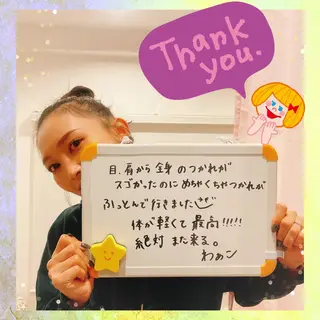 Thank
you.
目、肩から全身のつかれが
スゴかったのにめちゃくちゃつかれが
ふっとんで行きました
体が軽くて最高!!!!!
絶対また来る。
わぁこ